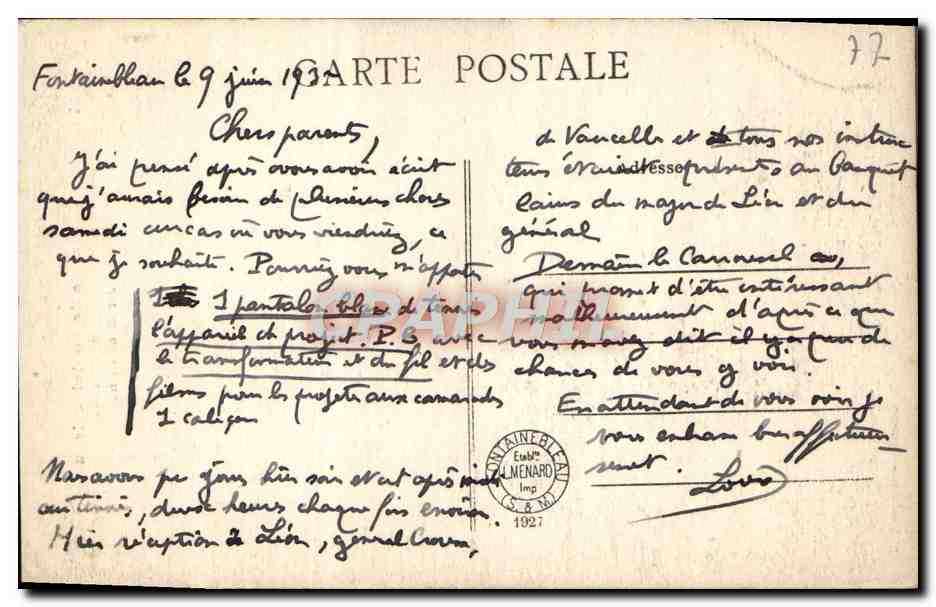 77
CARTE POSTALE
Fontainebleau le 9 juin 193
Chers parents,
J'ai pensé après vous avoir écrit
que j'aurais besoin de plusieurs choses
samedi au cas où vous viendriez, ce
que je souhaite. Pourriez vous m'apporter
1 pantalon blanc de tennis
l'appareil de projet. P.B. avec
le transformateur et du fil et des
films pour les projeter aux camarades
1 caleçon
Nous avons pu jouer hier soir et cet après midi
au tennis, deux heures chaque fois environ.
Hier réception à Léon, général
de Vaucelle et tous nos instruc
teurs étaient présents au banquet
ainsi du major de Léon et du
général
Demain le Carrousel
qui promet d'être intéressant
malheureusement d'après ce que
vous m'avez dit il y a peu de
chances de vous y voir.
En attendant de vous voir je
vous embrasse bien affectueu
sement.
Louis
ADRESSE
FONTAINEBLEAU
Etabl.ts
L. MENARD
Imp
(S. & M.)
1927
CRAPHIL